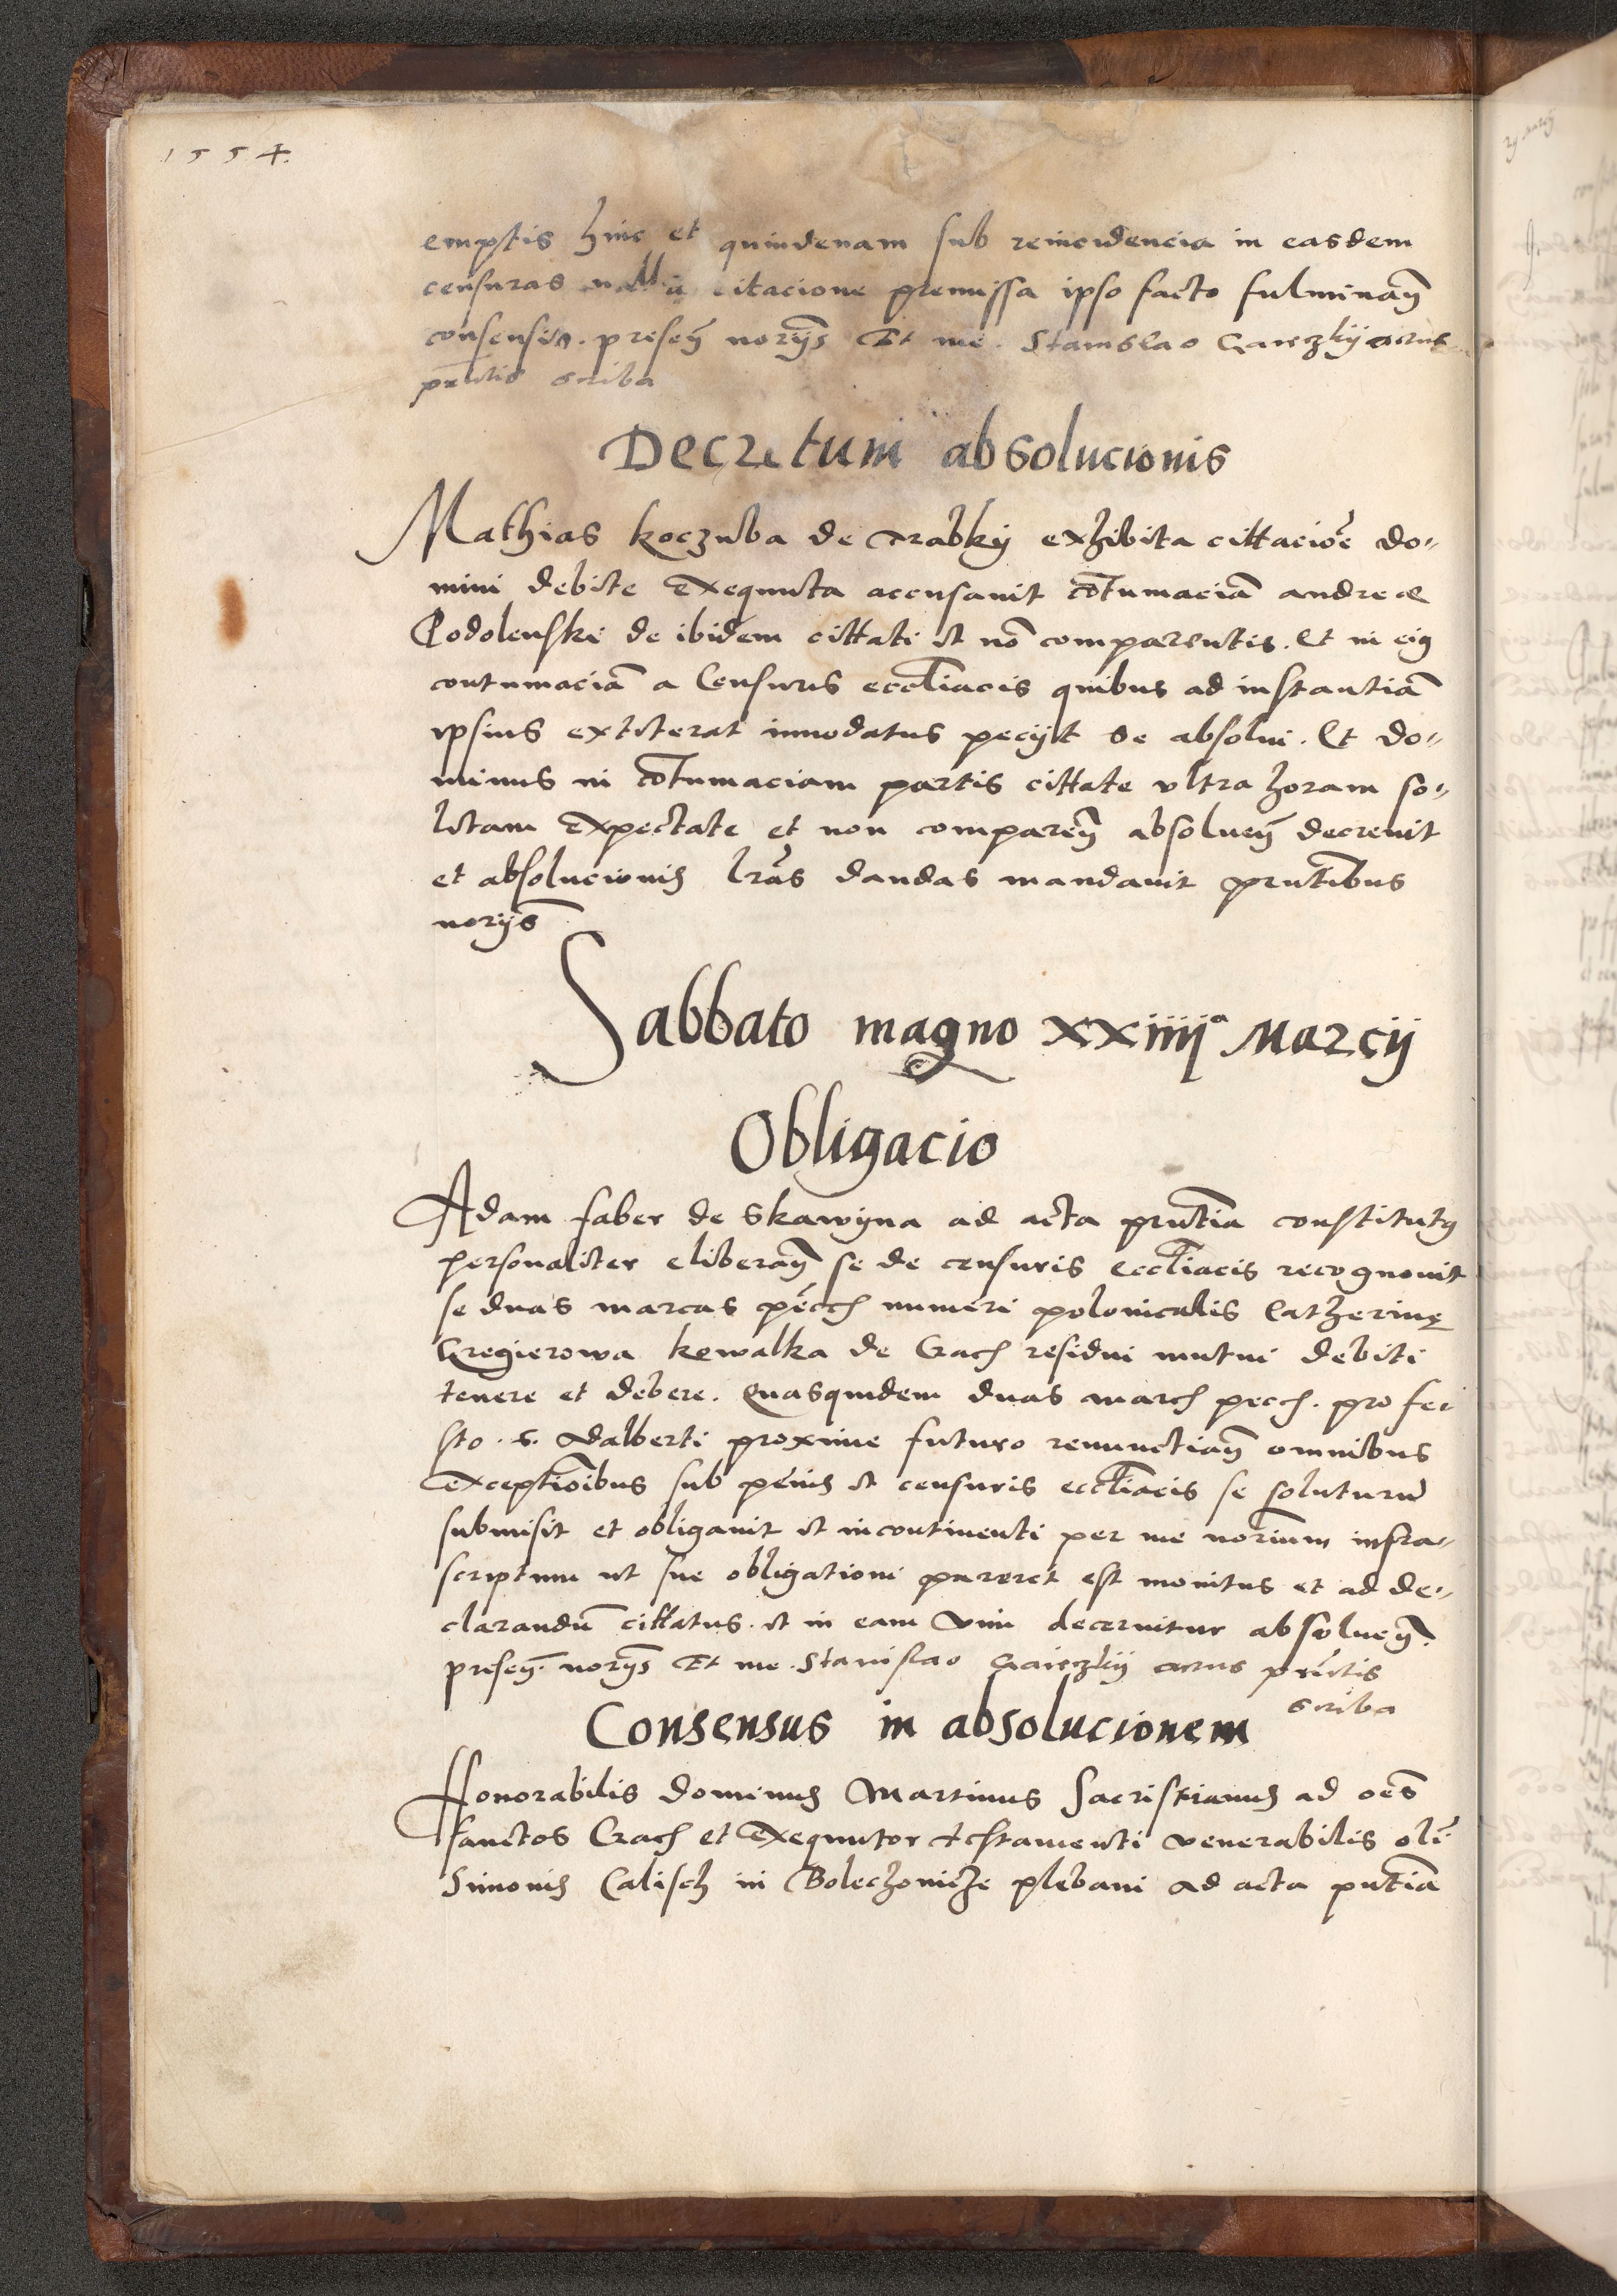 1554.
emptis hinc et quindenam sub reincidencia in easdem
censuras nulla citacione premissa ipso facto fulminan̄
consensit. presen̄ norijs Et me. Stanislao Gaiczkij actus
pn̄tis scriba
Decretum absolucionis
Mathias koczuba de Trabky exhibita cittaciōe do„
mini debite Exequuta accusauit cōtumaciā andreæ
Podolenski de ibidem cittati et nō comparentis. Et in eiꝯ
contumaciā a Censuris eccl̄iacis quibus ad instantiā
ipsius extiterat innodatus pecijt se absolui. Et do„
minus in cōtumaciam partis cittate vltra horam so„
litam Expectate et non comparen̄ absoluen̄ decreuit
et absolucionis lr̄as dandas mandauit pn̄tibus
norijs
Sabbato magno xxiiijᵃ Marcij
Obligacio
Adam faber de Skawyna ad acta pn̄tia constitutꝯ
personaliter eliberan̄ se de censuris eccl̄iacis recognouit
se duas marcas pecc̄ numeri polonicalis Catherinę
Gregierowa kowalka de Crac̄ residui mutui debiti
tenere et debere. Quasquidem duas marc̄ pecc̄. pro fe„
sto. S. Adalberti proxime futuro renunctian̄ omnibus
Exceptiōibus sub penis et censuris eccl̄iacis se soluturū
submisit et obligauit et incontinenti per me norium infra„
scriptum ut sue obligationi pareret est monitus et ad de„
clarandū cittatus. et in eam vim decernitur absoluen̄.
presen̄. norijs Et me. Stanislao Gaiczkij actus pn̄tis
scriba
Consensus in absolucionem
Honorabilis dominus Martinus Sacristianus ad oēs
sanctos Crac̄ et Exequutor testamenti venerabilis olī
Simonis Calisch in Bolechowicze plebani ad acta pn̄tia